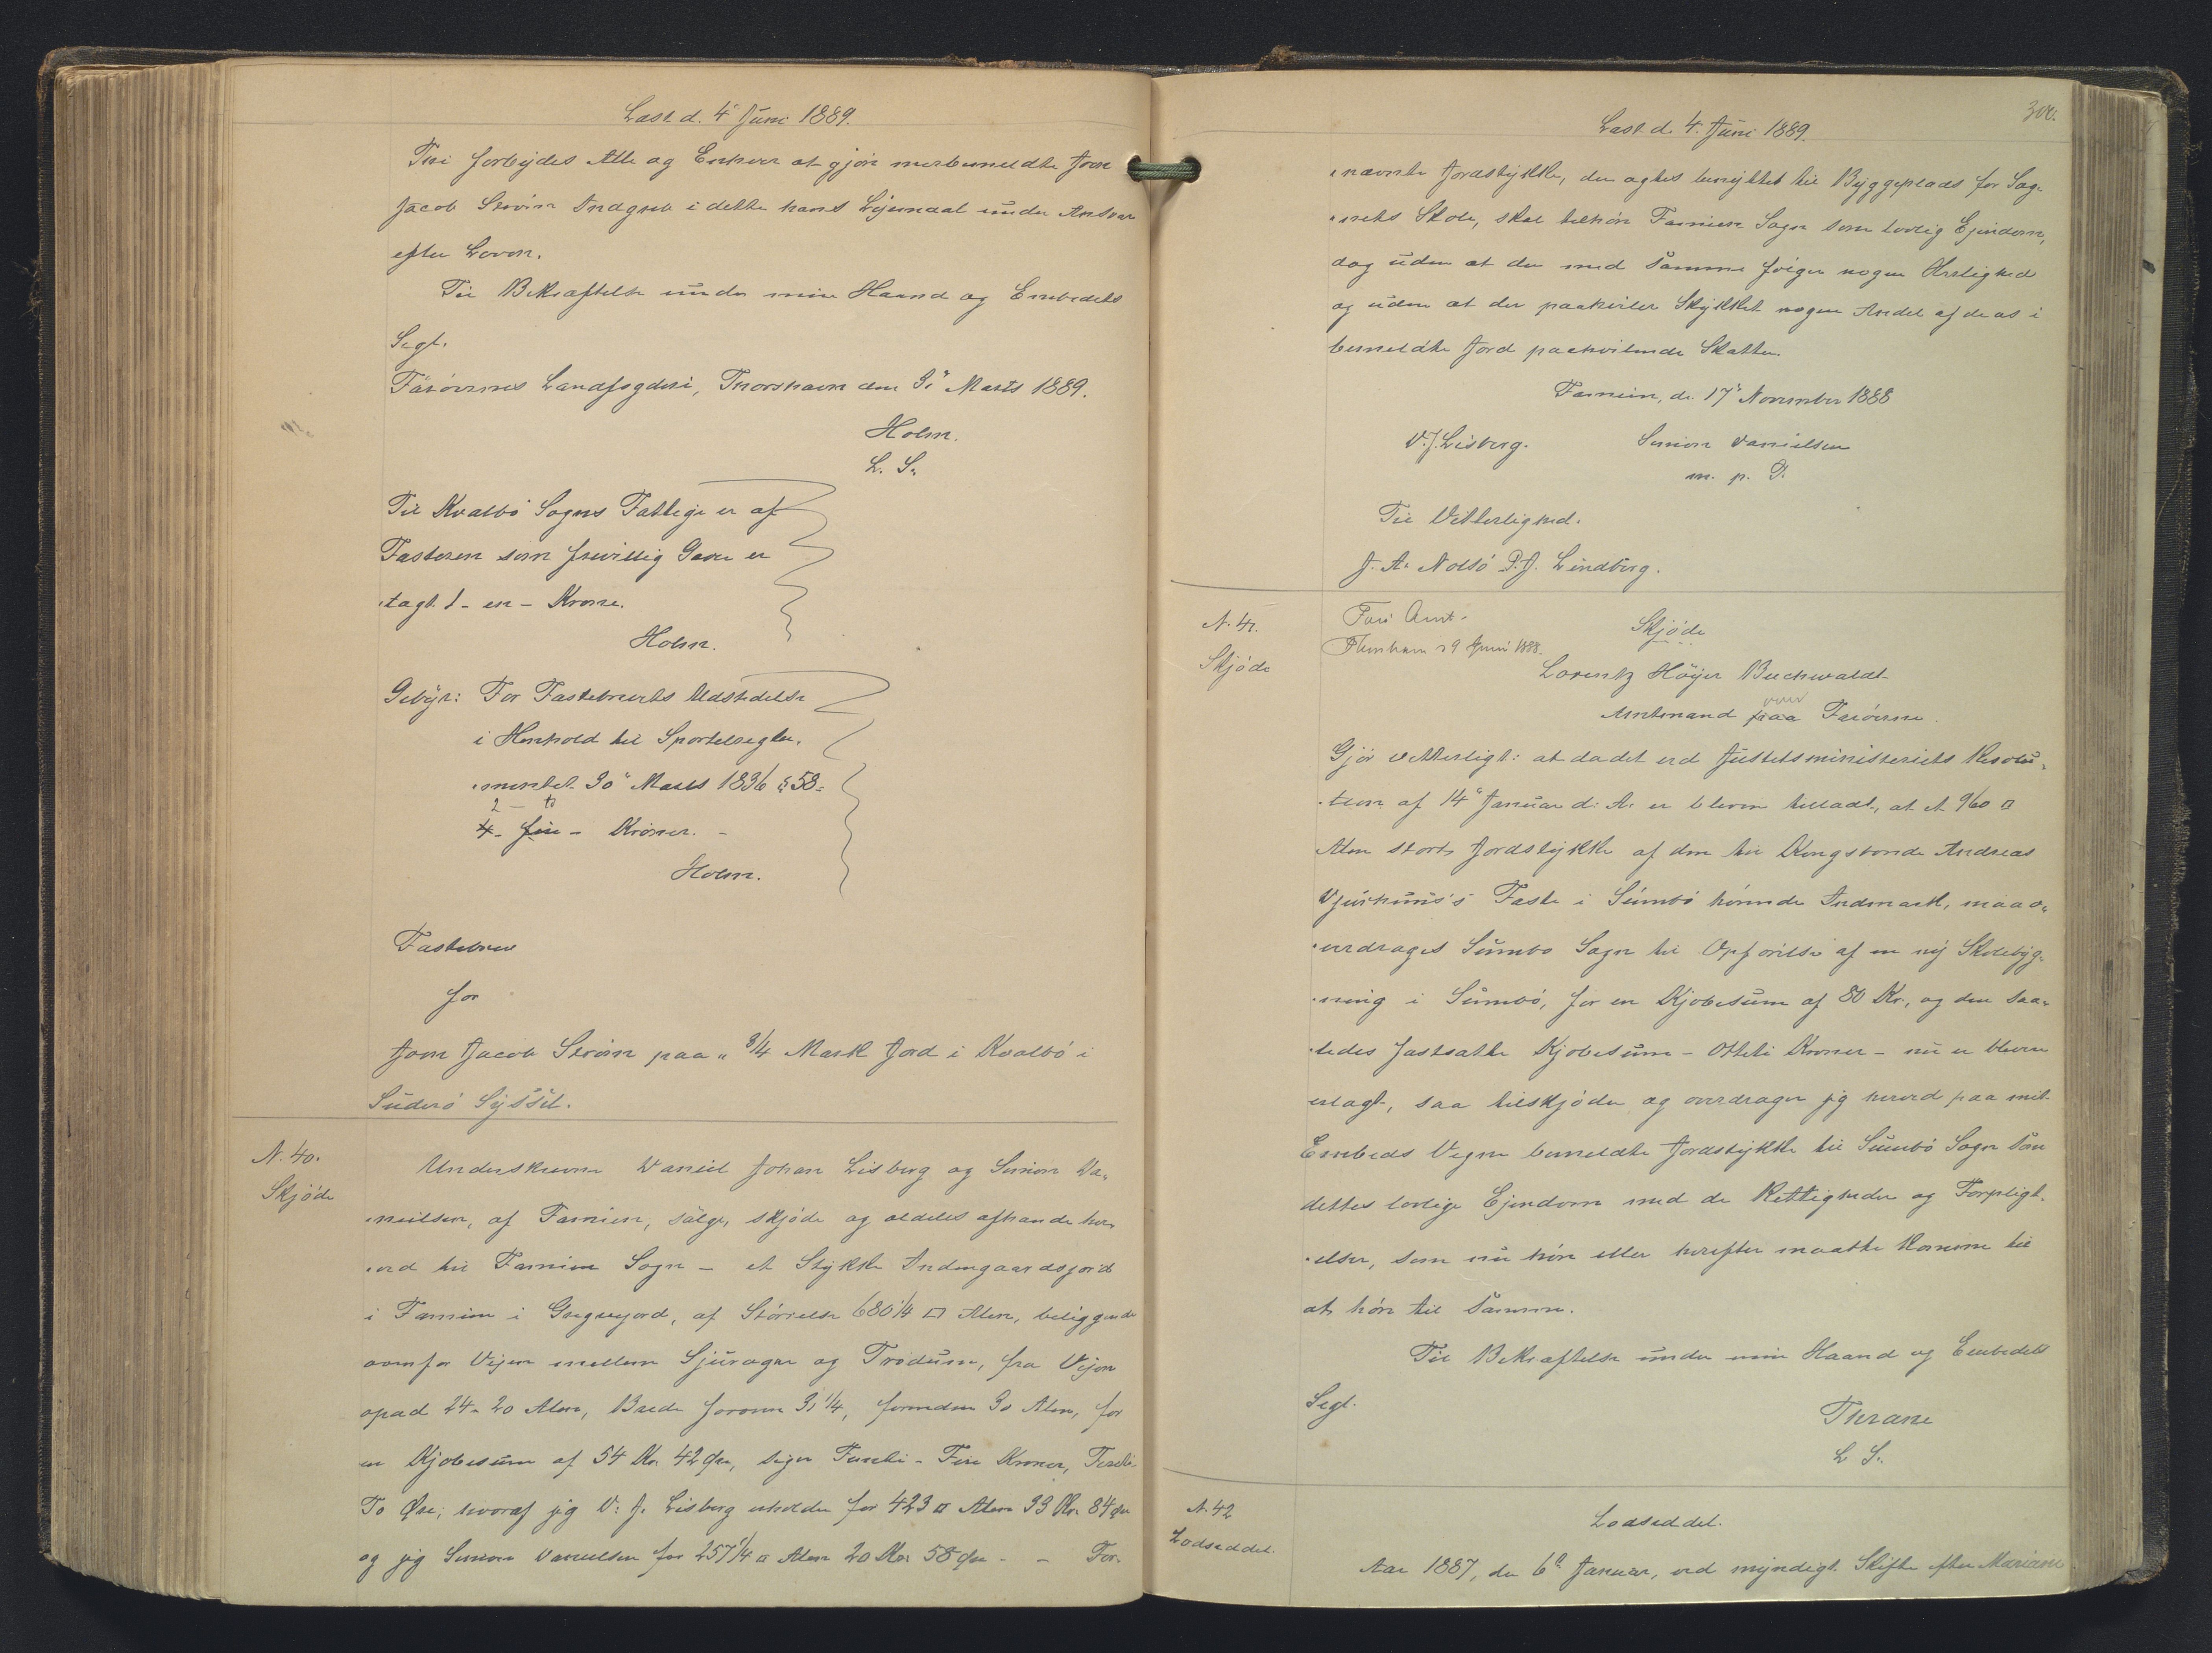 Læst d. 4' Juni 1889.
Thi forbydes Alle og Enhver at gjöre merbemeldte Joen
Jacob Indgreb i dette hans Lejemaal under Ansvar
efter Loven.
Til Bekræftelse under min Haand og Embedets
Segl.
Färöernes Landfogderi, Thorshavn den 3" Marts 1889.
Holm.
L. S.
Til Kvalbö Sogns Fattige er af
Fæsteren som frivillig Gave er
lagt 1 - en - Krone.
Holm.
Gebÿr: For Fæstebrevets Udstedelse
i Henhold til Sportelregle-
mentet 30" Marts 1836 § 58-
2 - to
4 - fire - Kroner. -
Holm.
Fæstebrev
for
Joen Jacob paa " 3/4 Mark Jord i Kvalbö i
Süderö Sÿssel.
N. 40.
Skjöde
Underskrevne Daniel Johan Lisberg og Simon Da-
nielsen, af Famien, sälge, skjöde og aldeles afhænde her-
ved til Famien Sogn - et Stykke Indengaardsjord
i Famien i , af Störrelse 680 1/4 □ Alen, beliggende
ovenfor Vejen mellem og , fra Vejen
opad 24 - 20 Alen, Brede foroven 31 1/4, forneden 30 Alen, for
en Kjøbesüm af 54 Kr. 42 Øre, siger Fireti - Fire Kroner,
To Øre; hvoraf jeg D. J. Lisberg erholder for 423 □ Alen 33 Kr. 84 Øre
og jeg Simon Danielsen for 257 1/4 □ Alen 20 Kr. 58 Øre - - For-
300.
Læst d. 4. Juni 1889.
nævnte Jordstykke, der agtes benyttet til Byggeplads for Sog-
nets Skole, skal tilhöre Famien Sogn som lovlig Ejendom,
dog uden at der med samme fölger nogen Herlighed
og uden at der paahviler Stykket nogen Andel af de os i
bemeldte Jord paahvilende Skatter.
Famien, d. 17" November 1888
D. J. Lisberg. Simon Danielsen
m. p. P.
Til Vitterlighed.
J. A. Nolsö P. J. Lindberg.
N. 41.
Skjöde
Färö Amt.
Thorshavn 29 Juni 1888.
Skjöde
Lorentz Höyer Buchwaldt
over
Amtmand paa Faröerne.
Gjör vitterligt: at da det ved Justitsministeriets Resolu-
tion af 14" Januar d. A. er bleven tilladt, at et 960 □
Alen stort Jordstykke af den til Kongsbonde Andreas
Djürhuus's Fæste i Sümbö hörende Indmark, maa o-
verdrages Sümbo Sogn til Opförelse af en nÿ Skolebÿg-
ning i Sümbö, for en Kjøbesüm af 80 Kr., og den saa-
ledes fastsatte Kjøbesüm - Otteti Kroner - nu er bleven
erlagt, saa tilskjöder og overdrager jeg herved paa mit
Embeds Vegne bemeldte Jordstykke til Sümbö Sogn som
dettes lovlige Ejendom med de Rettigheder og Forpligt-
elser, som nu höre eller herefter maatte komme til
at höre til samme.
Til Bekræftelse under min Haand og Embedets
Segl.
Thrane
L. S.
N. 42
Lodseddel.
Lodseddel.
Aar 1887, den 6" Januar, ved myndigt Skifte efter Mariane